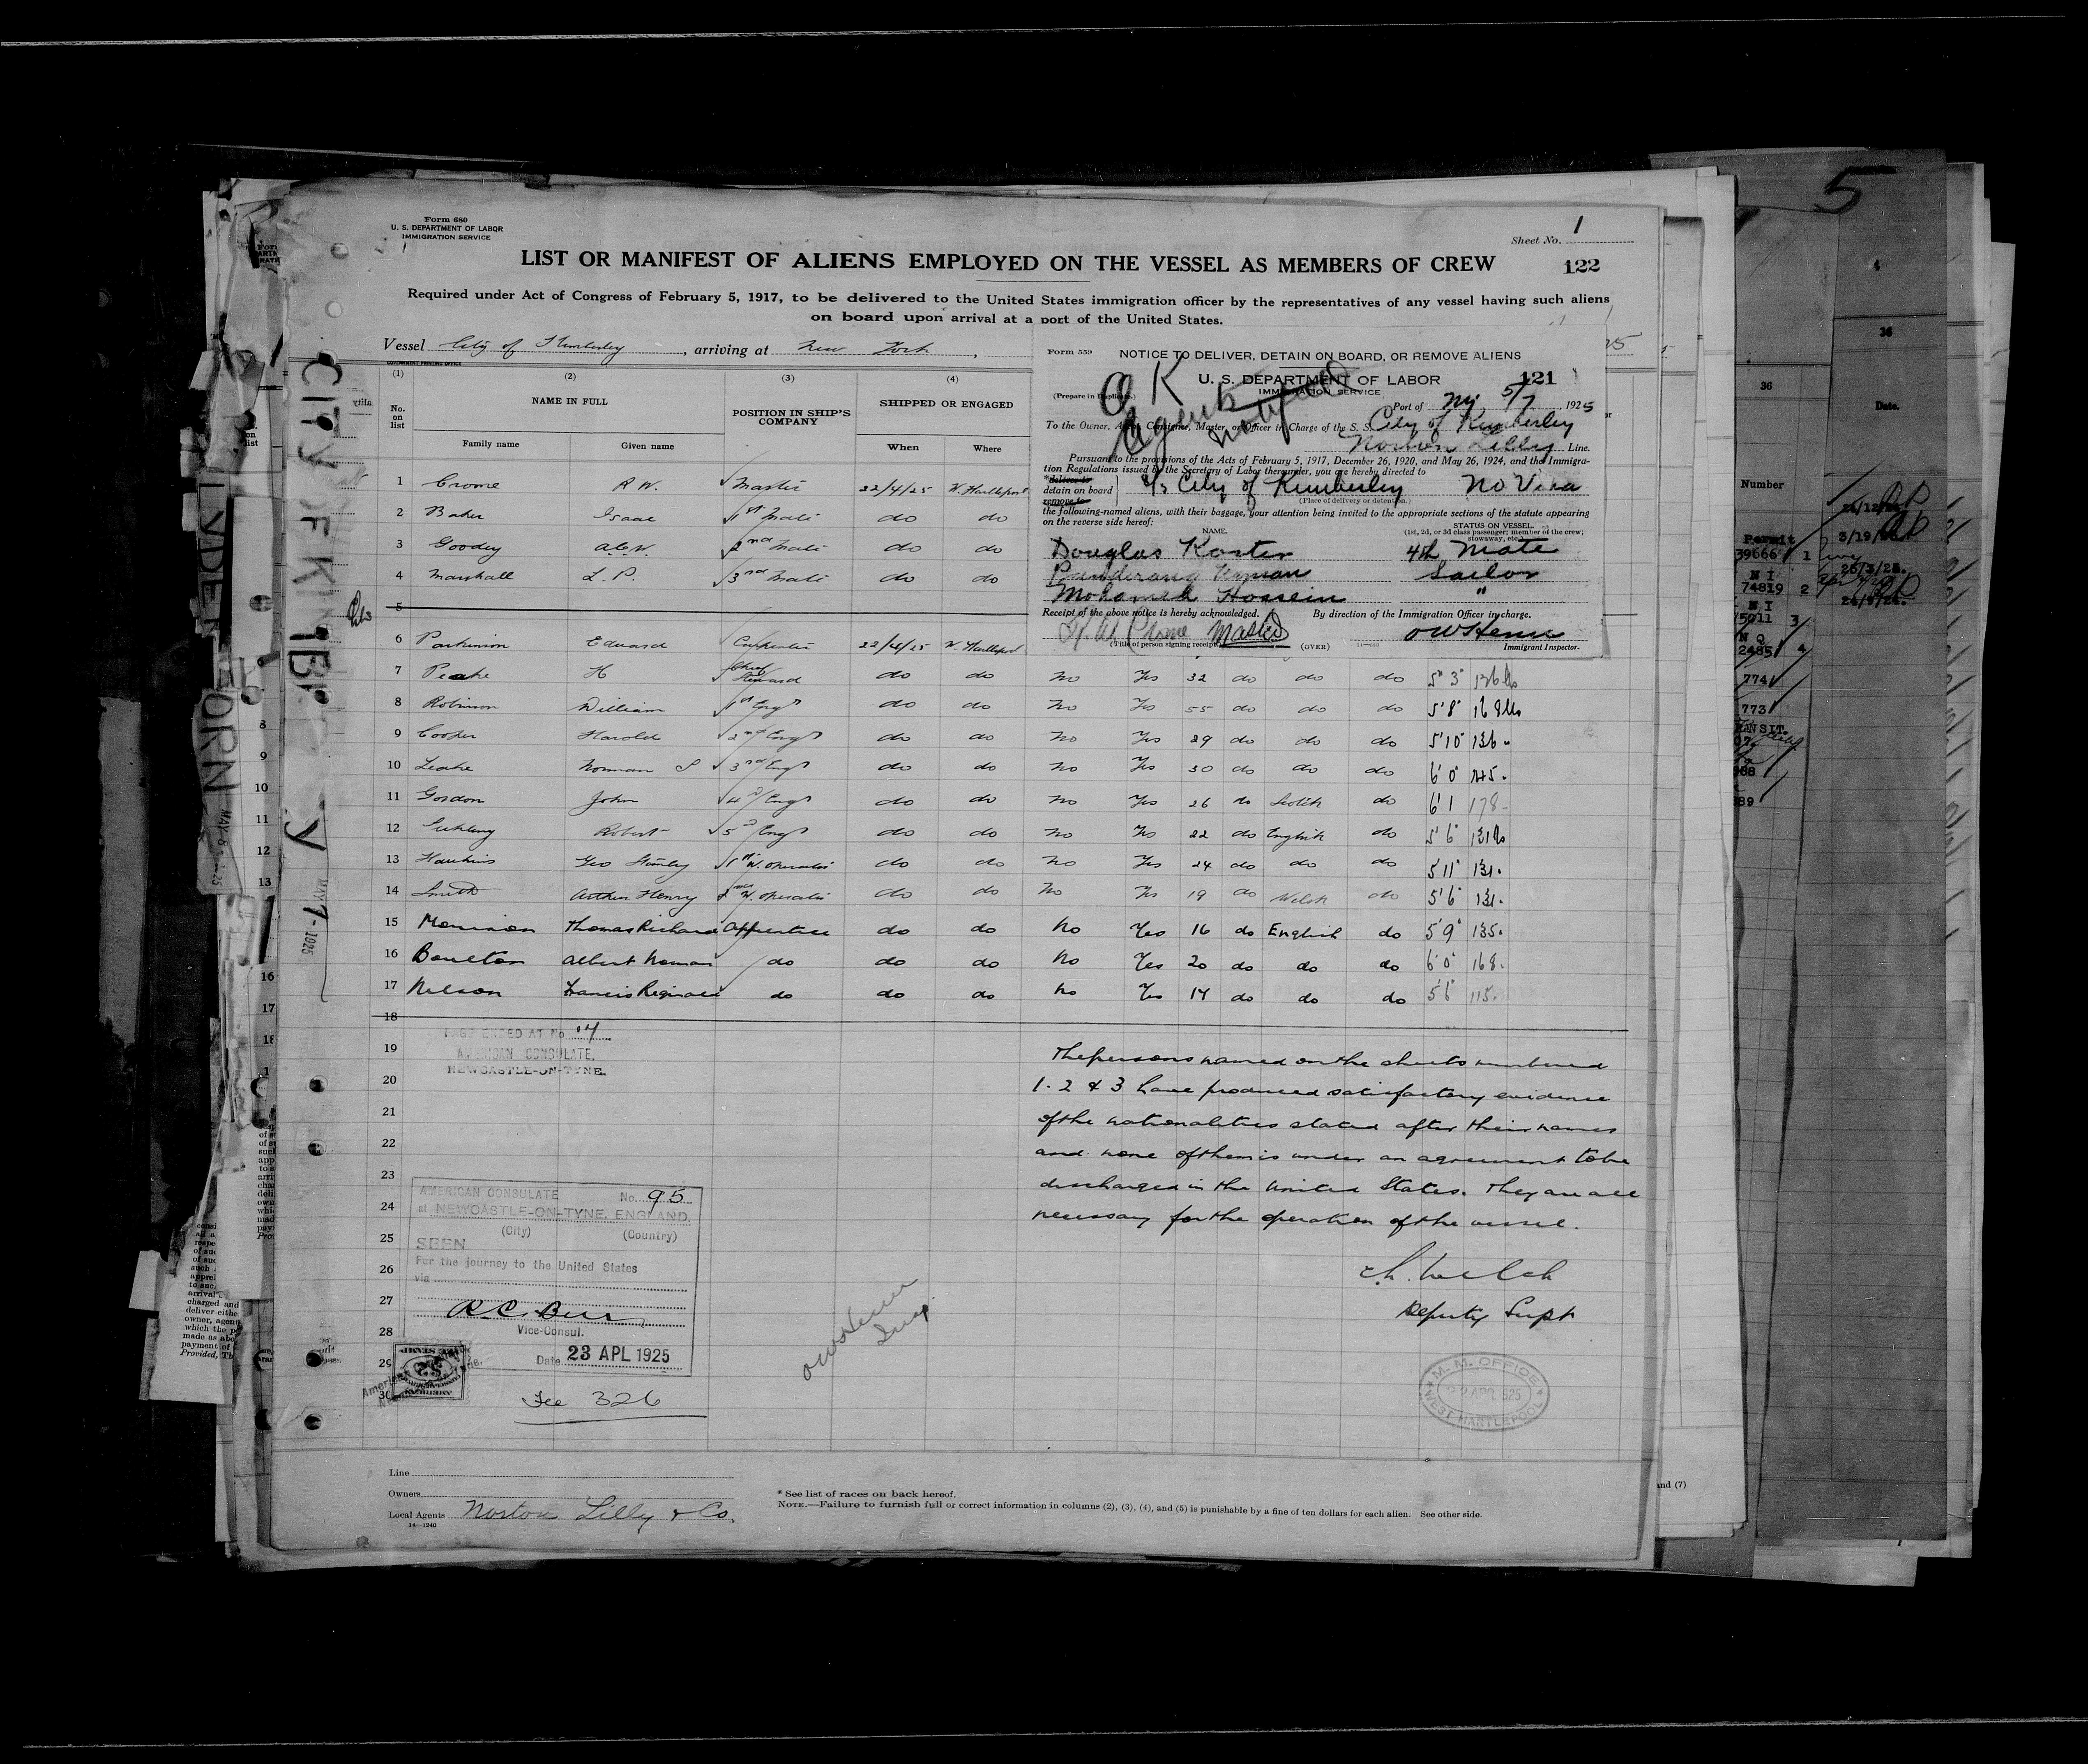 Form 680
U. S. DEPARTMENT OF LABOR
IMMIGRATION SERVICE
Sheet No. 1
LIST OR MANIFEST OF ALIENS EMPLOYED ON THE VESSEL AS MEMBERS OF CREW
122
Required under Act of Congress of February 5, 1917, to be delivered to the United States immigration officer by the representatives of any vessel having such aliens
on board upon arrival at a port of the United States.
Vessel City of Kimberley, arriving at New York,
(1) (2) (3) (4)
No. on list
NAME IN FULL
Family name Given name
POSITION IN SHIP'S COMPANY
SHIPPED OR ENGAGED
When Where
1 Crome R W. Master 22/4/25 W. Hartlepool
2 Baker Isaac 1st Mate do do
3 Goodey 2nd Mate do do
4 Marshall L. P. 3rd Mate do do
5
6 Parkinson Edward Carpenter 22/4/25 W. Hartlepool
7 Peake H Chief Steward do do No Yes 32 do do do 5' 3" 126 lbs
8 Robinson William 1st Engr do do No Yes 55 do do do 5'8" 168 lbs
9 Cooper Harold 2nd Engr do do No Yes 29 do do do 5'10" 136
10 Leake Norman S 3rd Engr do do No Yes 30 do do do 6'0"
11 Gordon John 4th Engr do do No Yes 26 do Scotch do 6'1 178
12 Robert 5 Engr do do No Yes 22 do English do 5'6" 131 lbs
13 Hawkins Geo Stanley 1st W. Operator do do No Yes 24 do do do 5'11" 131.
14 Smith Arthur Henry 2nd W. Operator do do No Yes 19 do Welsh do 5'6" 131.
15 Morrison Thomas Richard Apprentice do do No Yes 16 do English do 5'9" 135.
16 Boulton Albert Norman do do do No Yes 20 do do do 6'0" 168.
17 Nelson Francis Reginald do do do No Yes 17 do do do 5'6" 115.
18
19
20
21
22
23
24
25
26
27
28
29
30
Form 559
NOTICE TO DELIVER, DETAIN ON BOARD, OR REMOVE ALIENS
U. S. DEPARTMENT OF LABOR
IMMIGRATION SERVICE
121
(Prepare in Duplicate.)
OK
Agents notified
Port of N.Y. 5/7 1925
To the Owner, Agent, Consignee, Master, or Officer in Charge of the S. S. City of Kimberley
Norton Lilly Line.
Pursuant to the provisions of the Acts of February 5, 1917, December 26, 1920, and May 26, 1924, and the Immigra-
tion Regulations issued by the Secretary of Labor thereunder, you are hereby directed to
*deliver to
detain on board
remove to
S/S City of Kimberley No Visa
(Place of delivery or detention.)
the following-named aliens, with their baggage, your attention being invited to the appropriate sections of the statute appearing
on the reverse side hereof:
NAME.
STATUS ON VESSEL.
(1st, 2d, or 3d class passenger; member of the crew; stowaway, etc.)
Douglas Koster 4th Mate
Sailor
Mohamed Hossein "
Receipt of the above notice is hereby acknowledged. By direction of the Immigration Officer in charge.
R. W. Crome Master
(Title of person signing receipt.) (OVER)
Immigrant Inspector.
CITY OF KIMBERLEY
MAY 7 - 1925
PAGE ENDED AT No 17
AMERICAN CONSULATE,
NEWCASTLE-ON-TYNE.
The persons named on the sheets numbered
1. 2 & 3 have produced satisfactory evidence
of the nationalities stated after their names
and none of them is under an agreement to be
discharged in the United States. They are all
necessary for the operation of the vessel.
Welch
Deputy Supt
M. M. OFFICE
22 APR 1925
WEST HARTLEPOOL
AMERICAN CONSULATE No. 95
at NEWCASTLE-ON-TYNE, ENGLAND.
(City) (Country)
SEEN
For the journey to the United States
via
Vice-Consul.
Date 23 APL 1925
Fee 326
Line
Owners
Local Agents Norton Lilly & Co.
14—1240
* See list of races on back hereof.
NOTE.—Failure to furnish full or correct information in columns (2), (3), (4), and (5) is punishable by a fine of ten dollars for each alien. See other side.
and (7)
5
4
36
36
Date.
Number
Permit
39666 1
N I
74819 2
N I
75011 3
N O
2485 4
774
773
3/19/
MAY 8 - 1925